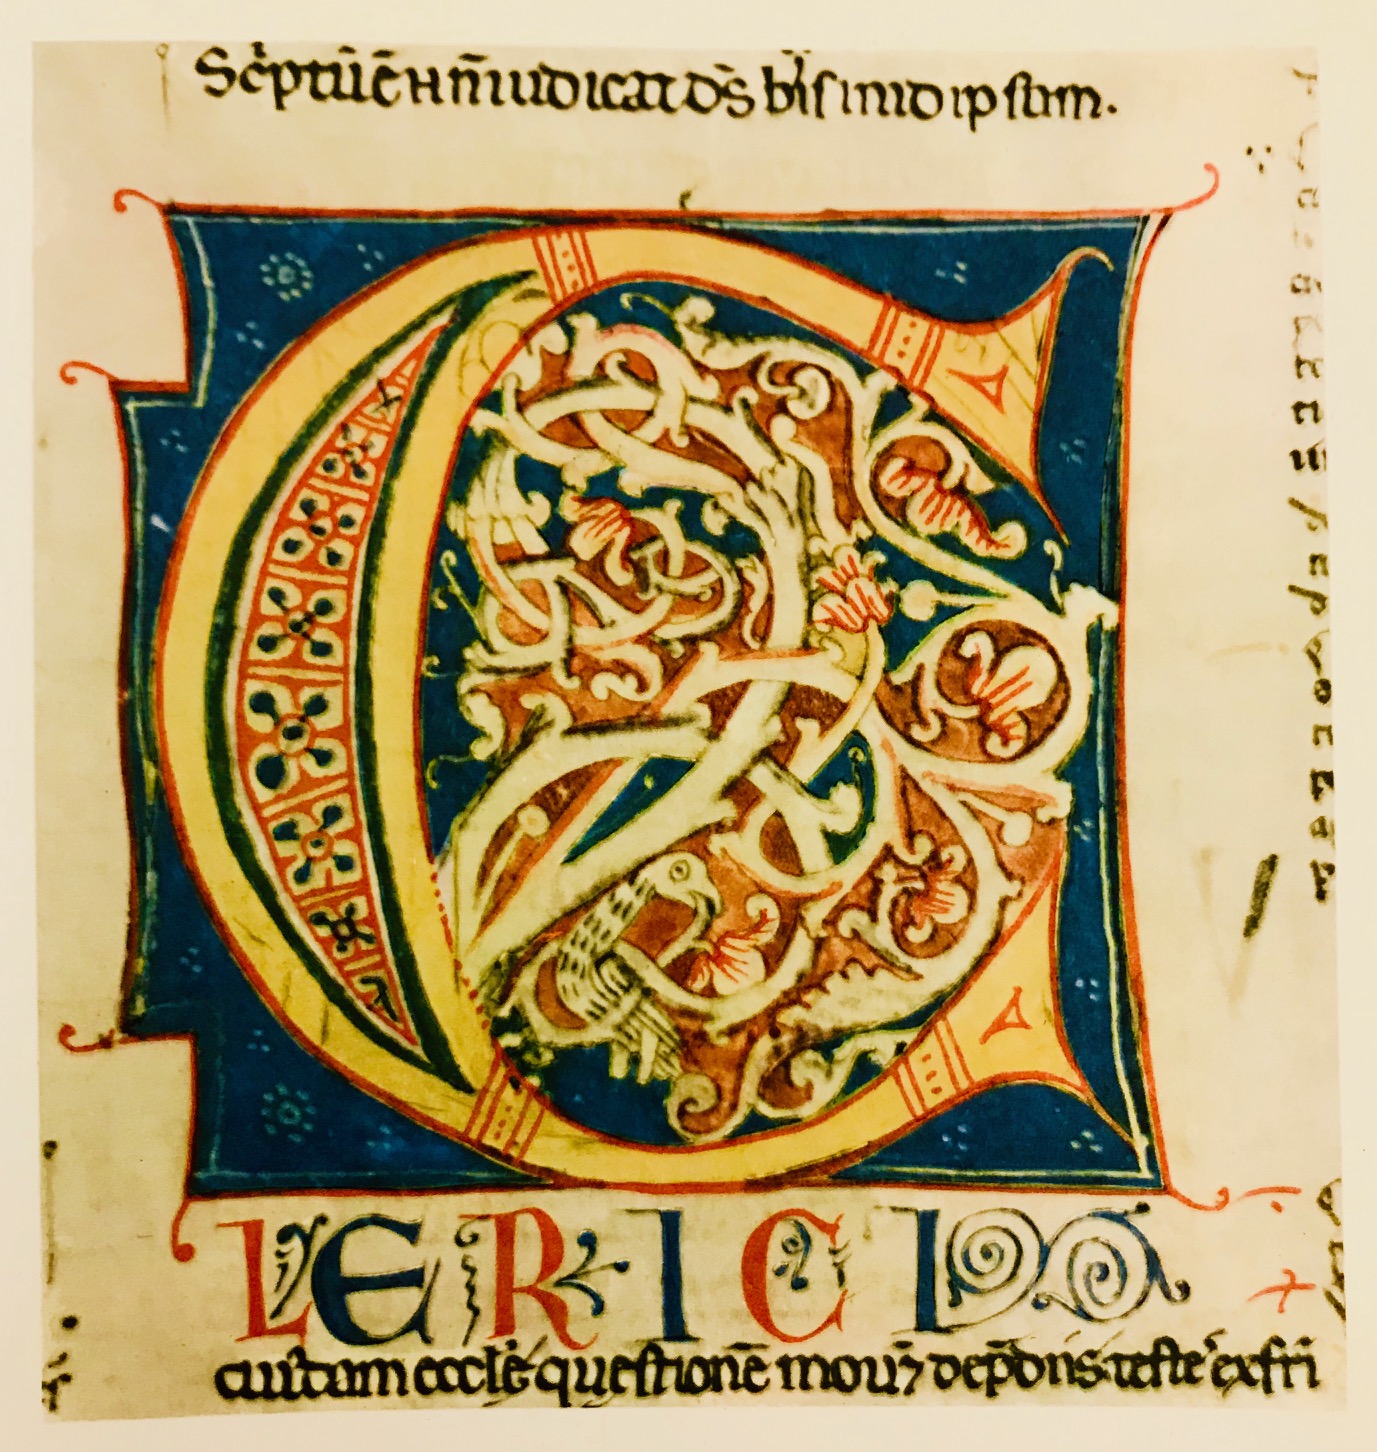 Sc'ptū ē H n̄ iudicat ds̄ bis in id ipsum.
CLERICI
cuiꝰdam eccle questionē mouēt de p̄diis. teste' ex fri